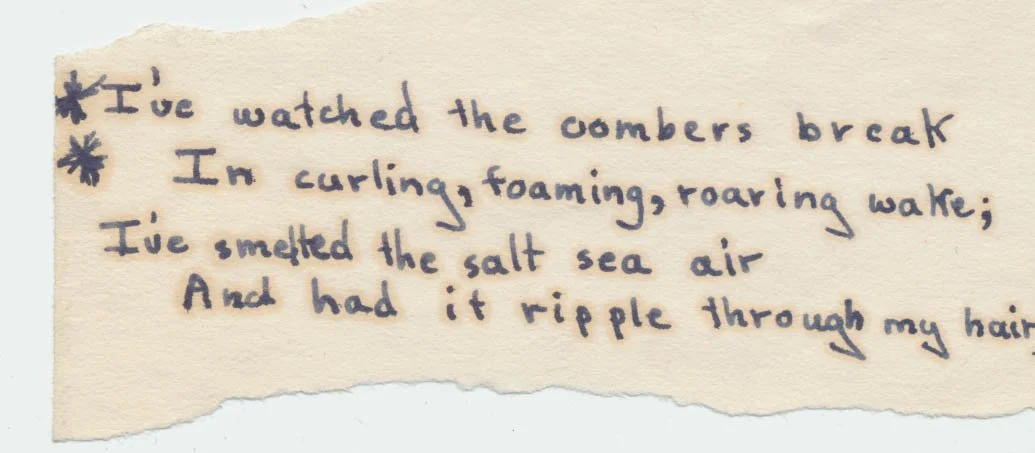 *I've watched the combers break
* In curling, foaming, roaring wake;
I've smelled the salt sea air
And had it ripple through my hair